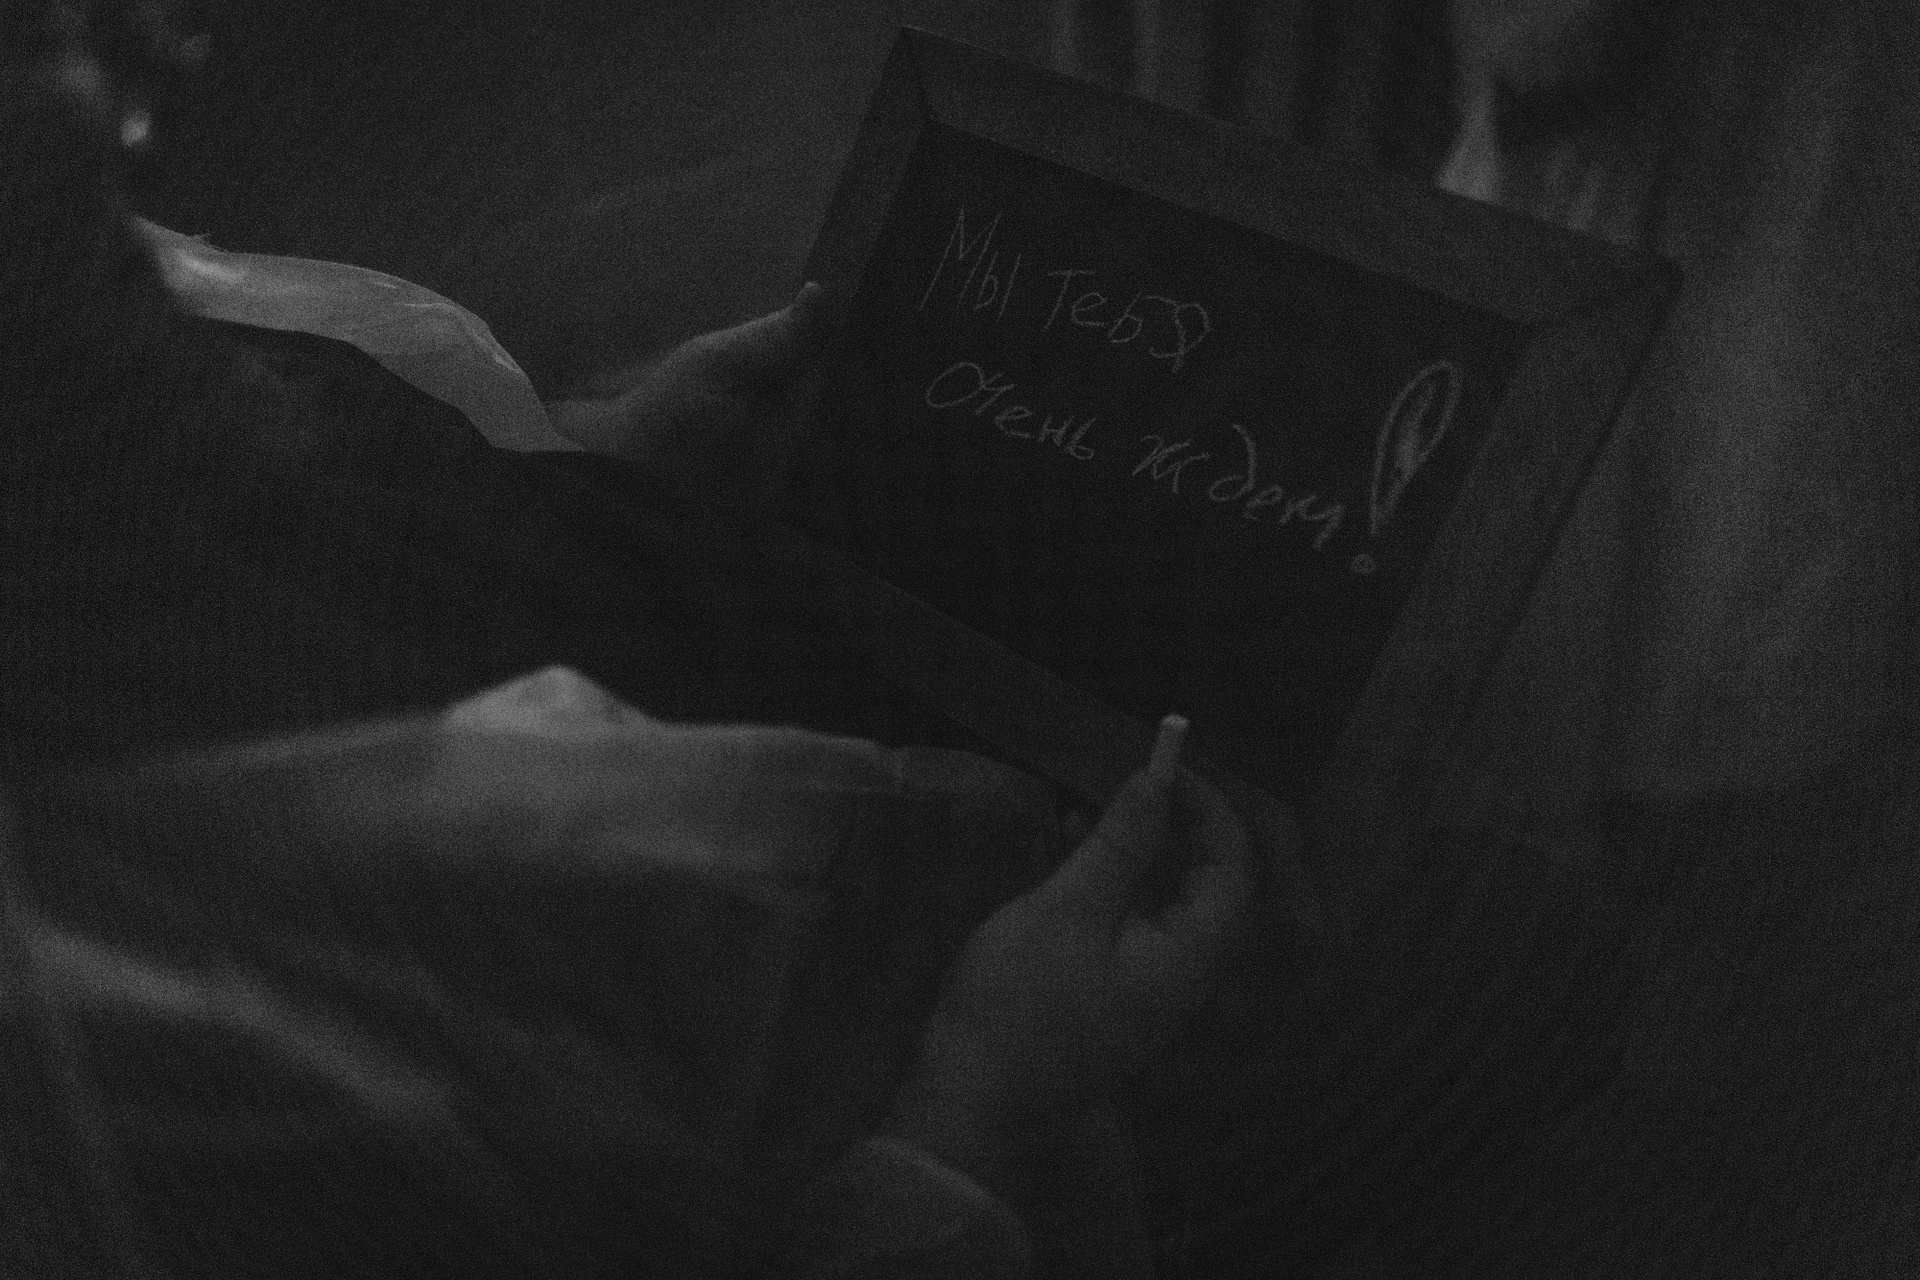 Мы тебя
очень ждем!